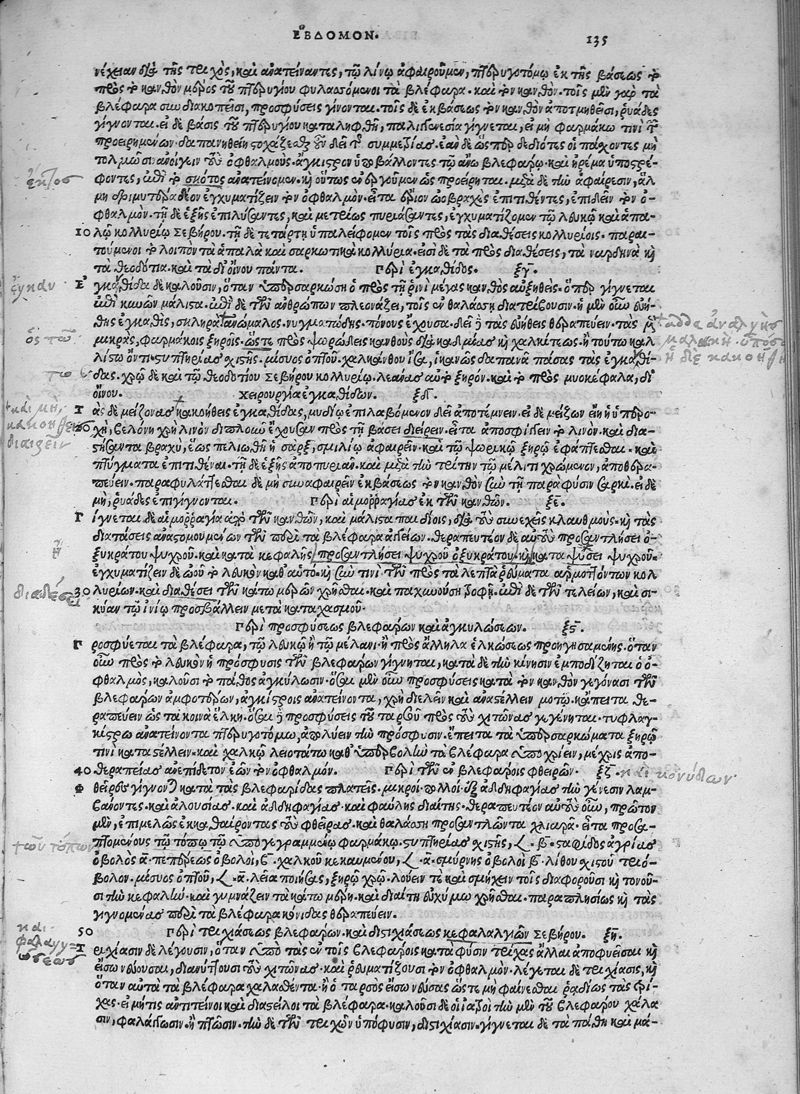 ἝΒΔΟΜΟΝ. 135
νέχειαν διὰ τῆς τριχὸς, καὶ ἀνατείναντες, τῷ λίνῳ ἀφαιροῦμεν, πτερυγοτόμῳ ἐκ τῆς βάσεως τὸ
πρὸς τὸν κανθὸν μέρος τοῦ πτερυγίου φυλασσόμενοι τὰ βλέφαρα. καὶ τὸν κανθόν. τοῖς μὲν γὰρ τὰ
βλέφαρα συνδιακοπεῖσι, προσφύσεις γίνονται. τοῖς δὲ ἐκ βάσεως τὸν κανθὸν ἀποτμηθεῖσι, ῥυάδες
γίγνονται. εἰ δὲ βάσις τοῦ πτερυγίου καταληφθῇ, παλιγγενεσία γίγνεται, εἰ μὴ φαρμάκῳ τινὶ τῶν
προειρημένων δαπανηθείη στοχάζεσθαι οὖν δεῖ τῆς συμμετρίας. ἐὰν δὲ ὥσπερ δεδιότες οἱ πάσχοντες μὴ
τολμῶσι ἀνοίγειν τοὺς ὀφθαλμοὺς. ἄγκιστρον ὑποβάλλοντες τῷ ἄνω βλεφάρῳ. καὶ ἠρέμα ὑποστρέ-
φοντες, ἐπὶ τὸ σκότος ἀνατείνομεν. καὶ οὕτως ἐνεργοῦμεν ὡς προείρηται. μετὰ δὲ τὴν ἀφαίρεσιν, ἅλ
μη δριμυτέρᾳ δέον ἐγχυματίζειν τὸν ὀφθαλμὸν. εἶτα ἔριον ὠοβραχὲς ἐπιτιθέντες, ἐπιδεῖν τὸν ὀ-
φθαλμόν. τῇ δὲ ἑξῆς ἐπιλύσαντες, καὶ μετρίως πυριάσαντες, ἐγχυματίζομεν τῷ λευκῷ καὶ ἁπα-
10 λῷ κολλυρίῳ Σεβήρου. τῇ δὲ τετάρτῃ ὑπαλείφομεν τοῖς πρὸς τὰς διαθέσεις κολλυρίοις. παραι-
τούμενοι τὸ λοιπὸν τὰ ἁπαλὰ καὶ σαρκωτικὰ κολλύρια. εἰσὶ δὲ τὰ πρὸς διαθέσεις, τὰ ναρδινὰ καὶ
τὰ θεοδότια. καὶ τὰ δι' οἴνου πάντα. Περὶ ἐγκανθίδος. ξγ.
Ἐγκανθίδα δὲ καλοῦσιν, ὅταν ὑπερσαρκώσῃ ὁ πρὸς τῇ ῥινὶ μέγας κανθὸς αὐξηθεὶς. ὅπερ γίγνεται
ἐπὶ καυῶν μάλιστα. ἐπὶ δὲ τῶν ἀνθρώπων πλεονάζει, τοῖς ἐν θαλάσσῃ διατρίβουσιν. ἡ μὲν οὖν εὐή-
θης ἐγκανθὶς, σκληρὰ ἀνώμαλος. νυγματώδης. πόνους ἔχουσα. δεῖ δὲ τὰς εὐήθεις θεραπεύειν. τὰς μὲν
μικρὰς, φαρμάκοις ξηροῖς. ὥστε πρὸς ψωρώδεις κανθοὺς διὰ καδμίας καὶ χαλκίτεως. ἢ τούτῳ καλ-
λίστῳ ὄντι. στυπτηρίας σχιστῆς. μίσυος ὀπτοῦ. χαλκάνθου ἴσα, ἱκανῶς δαπανᾷ πάσας τὰς ἐγκανθί-
δας. χρῶ δὲ καὶ τῷ θεοδοτίου Σεβήρου κολλυρίῳ. λεάνας αὐτὸ ξηρόν. καὶ τὸ πρὸς μυοκέφαλα, δι'
οἴνου. Χειρουργία ἐγκανθίδων. ξδ.
Τὰς δὲ μείζονας κακοήθεις ἐγκανθίδας, μυδίῳ ἐπιλαβόμενον δεῖ ἀποτέμνειν. εἰ δὲ μείζων εἴη ἡ ὑπερο-
20 χὴ, βελόνῃ χρὴ λίνον διπλοῦν ἐχούσῃ πρὸς τῇ βάσει διείρειν. εἶτα ἀποσφίγγειν τὸ λίνον. καὶ δια-
στήσαντα βραχὺ, ἕως πελιωθῇ ἡ σὰρξ, σμιλίῳ ἀφαιρεῖν. καὶ τῷ ψωρικῷ ξηρῷ ἐφάπτεσθαι. καὶ
πτύγματα ἐπιτιθέναι. τῇ δὲ ἑξῆς ἀποπυριᾶν. καὶ μετὰ τὴν τρίτην τῷ μέλιτι χρώμενον, ἀποθερα-
πεύειν. παραφυλάττεσθαι δὲ μὴ συναφαιρεῖν ἐκ βάσεως τὸν κανθὸν σὺν τῇ παραφύσει σαρκί. εἰ δὲ
μὴ, ῥυάδες ἐπιγίγνονται. Περὶ αἱμορραγίας ἐκ τῶν κανθῶν. ξε.
Γίγνεται δὲ αἱμορραγία ἀπὸ τῶν κανθῶν, καὶ μάλιστα παιδίοις, διὰ τοὺς συνεχεῖς κλαυθμοὺς. καὶ τὰς
διατάσεις ἀναστομουμένων τῶν περὶ τὰ βλέφαρα ἀγγείων. θεραπευτέον δὲ αὐτοὺς προσαντλήσει ὀ-
ξυκράτου ψυχροῦ. καὶ κατὰ κεφαλῆς προσαντλήσει ψυχροῦ ὀξυκράτου. καὶ καταψύσει ψυχροῦ.
ἐγχυματίζειν δὲ ὠοῦ τὸ λευκὸν καθ' αὑτὸ. καὶ σύν τινι τῶν πρὸς τὰ λεπτὰ ῥεύματα ἁρμοττόντων κολ
30 λυρίων. καὶ διαθέσει τῶν κάτω μερῶν χρῆσθαι. καὶ παχυνούσῃ τροφῇ. ἐπὶ δὲ τῶν τελείων, καὶ σι-
κύαν τῷ ἰνίῳ προσβάλλειν μετὰ κατασχασμοῦ.
Περὶ προσφύσεως βλεφάρων καὶ ἀγκυλώσεως. ξϛ.
30 Προσφύεται τὰ βλέφαρα, τῷ λευκῷ ἢ τῷ μέλανι. ἢ πρὸς ἄλληλα ἑλκώσεως προηγησαμένης. ὅταν
οὖν πρὸς τὸ λευκὸν ἡ πρόσφυσις τῶν βλεφάρων γίγνηται, κατὰ δὲ τὴν κίνησιν ἐμποδίζηται ὁ ὀ-
φθαλμὸς, καλοῦσι τὸ πάθος ἀγκύλωσιν. ὅσαι μὲν οὖν προσφύσεις κατὰ τὸν κανθὸν γεγόνασι τῶν
βλεφάρων ἀμφοτέρων, ἀγκίστροις ἀνατείνοντα, χρὴ διελεῖν καὶ ἀναστέλλειν μοτῷ. κἄπειτα θε-
ραπεύειν ὡς τὰ κοινὰ ἕλκη. ὅσαι δὲ προσφύσεις τοῦ ταρσοῦ πρὸς τοὺς χιτῶνας γεγένηνται. τυφλαγ-
κίστρῳ ἀνατείνοντα πτερυγοτόμῳ, ἀπολύειν τὴν πρόσφυσιν. ἔπειτα τὰ ὑπερσαρκώματα ξηρῷ
τινὶ καταστέλλειν. καὶ χαλκῷ λειοτάτῳ καθ' ὑπερβολὴν τὰ βλέφαρα ὑποχρίειν, μέχρις ἀπο-
40 θεραπείας ἀνεπίδετον ἐῶν τὸν ὀφθαλμόν. Περὶ τῶν ἐν βλεφάροις φθειρῶν. ξζ. καὶ κονίδων
Φθεῖρες γίγνονται κατὰ τὰς βλεφαρίδας πλατεῖς. μικροὶ. πολλοὶ. ἐξ ἀδδηφαγίας τὴν γένεσιν λαμ-
βάνοντες. καὶ ἀλουσίας. καὶ ἀδδηφαγίας. καὶ φαύλης διαίτης. θεραπευτέον αὐτοὺς οὖν, πρῶτον
μὲν, ἐπιμελῶς ἐκκαθαίροντας τοὺς φθεῖρας. καὶ θαλάσσῃ προσαντλῶντα χλιαρᾷ. εἶτα προσα-
πτόμενους τῷ τόπῳ τῷ ὑπογεγραμμένῳ φαρμάκῳ. στυπτηρίας σχιστῆς, 𐅻. β. σταφίδος ἀγρίας
ὀβολὸς α. πεπέρεως ὀβολοὶ, ϛ. χαλκοῦ κεκαυμένου, 𐅻. α. σμύρνης ὀβολοὶ β. λίθου σχιστοῦ τριώ-
βολον. μίσυος ὀπτοῦ, 𐅻. α. λεῖα ποιήσας, ξηρῷ χρῶ. λούειν τε καὶ σμήχειν τοῖς διαφοροῦσι καὶ τονοῦ-
σι τὴν κεφαλὴν. καὶ γυμνάζειν τὰ κάτω μέρη. καὶ διαίτῃ εὐχύμῳ χρῆσθαι. παραπλησίως καὶ τὰς
γιγνομένας περὶ τὰ βλέφαρα κόνιδας θεραπεύειν.
50 Περὶ τριχιάσεως βλεφάρων. καὶ διστιχιάσεως κεφαλαλγιῶν Σεβήρου. ξη.
Τριχίασιν δὲ λέγουσιν, ὅταν ὑπὸ τὰς ἐν τοῖς βλεφάροις κατὰ φύσιν τρίχας ἄλλαι ἀποφύεισαι καὶ
εἴσω νεύουσαι, διανύττουσι τοὺς χιτῶνας. καὶ ῥευματίζουσι τὸν ὀφθαλμὸν. λέγεται δὲ τριχίασις, καὶ
ὅταν αὐτὰ τὰ βλέφαρα χαλασθέντα. ἢ ὁ ταρσὸς εἴσω νεύσας ὥστε μὴ φαίνεσθαι ῥᾳδίως τὰς τρί-
χας. εἰ μή τις ἀντιτείνοι καὶ διαστείλοι τὰ βλέφαρα. καλοῦσι δὲ οἱ ἰατροὶ τὴν μὲν τοῦ βλεφάρου χάλα
σιν, φαλάγγωσιν. ἢ πτῶσιν. τὴν δὲ τῶν τριχῶν ὑπόφυσιν, διστιχίασιν. γίγνεται δὲ τὰ πάθη καὶ μά-
ἐκτὸς
τῶν τόπων
καὶ
φαλαγγώ-
σεως